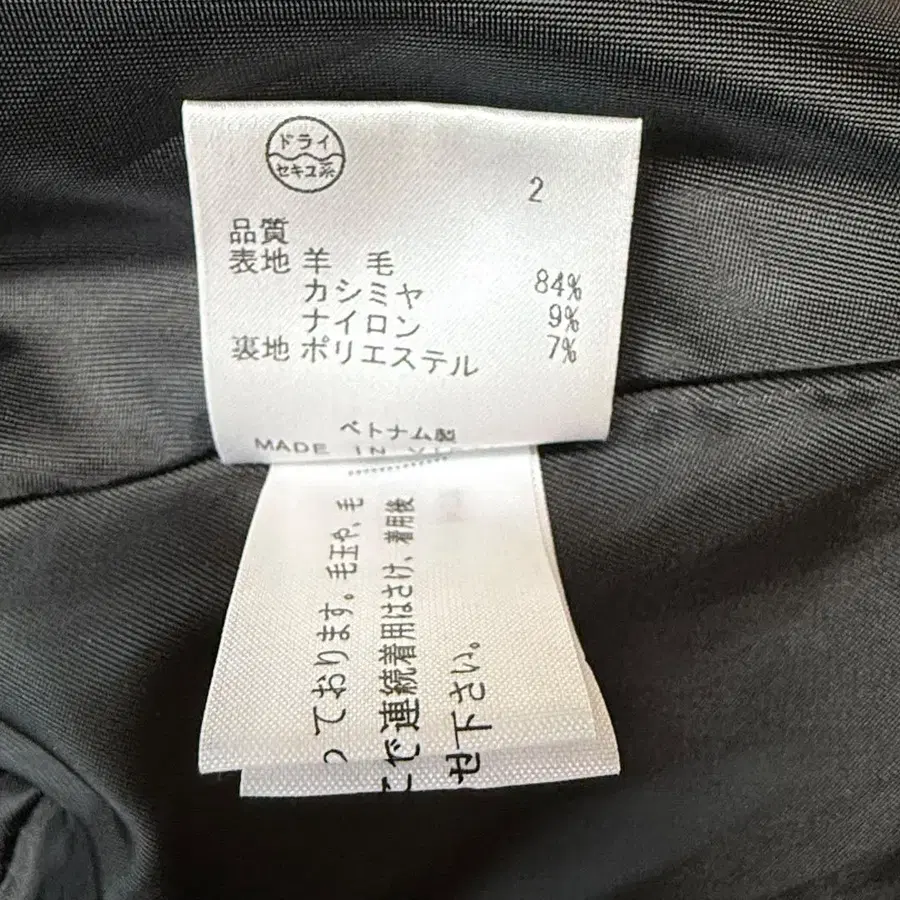 ドライ
セキユ系
2
品質
表地 羊 毛 84%
カシミヤ 9%
ナイロン 7%
裏地 ポリエステル
ベトナム製
MADE IN
っております。毛玉や、毛
で連続着用はさけ、着用後
せ下さい。